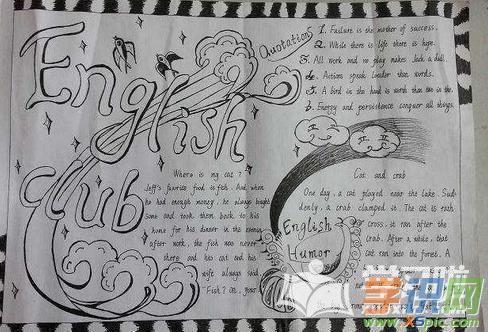 English
Club
Quotations
1. Failure is the mother of success.
2. While there is life there is hope.
3. All work and no play makes Jack a dull.
4. Actions speak louder than words.
5. A bird in the hand is worth than two in the
6. Energy and persistence conquer all things.
Where is my cat?
Jeff's favorite food is fish. And when
he had enough money, he always bought
some and took them back to his
home for his dinner in the evening
after work, the fish was never
there and his cat and his
wife always said,
"Fish? Oh, your
English
Humor
Cat and crab
One day, a cat played near the lake. Sud-
denly, a crab clamped it. The cat is rath
cross, it ran after the
crab. After a while, that
cat ran into the forest.
学识网
www.x5pic.com